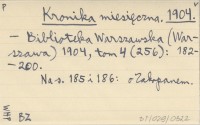 P V
Kronika miesięczna. 1904.
- Biblioteka Warszawska (War-
szawa) 1904, tom 4 (256): 182-
-200.
Na s. 185 i 186: o Zakopanem.
BZ